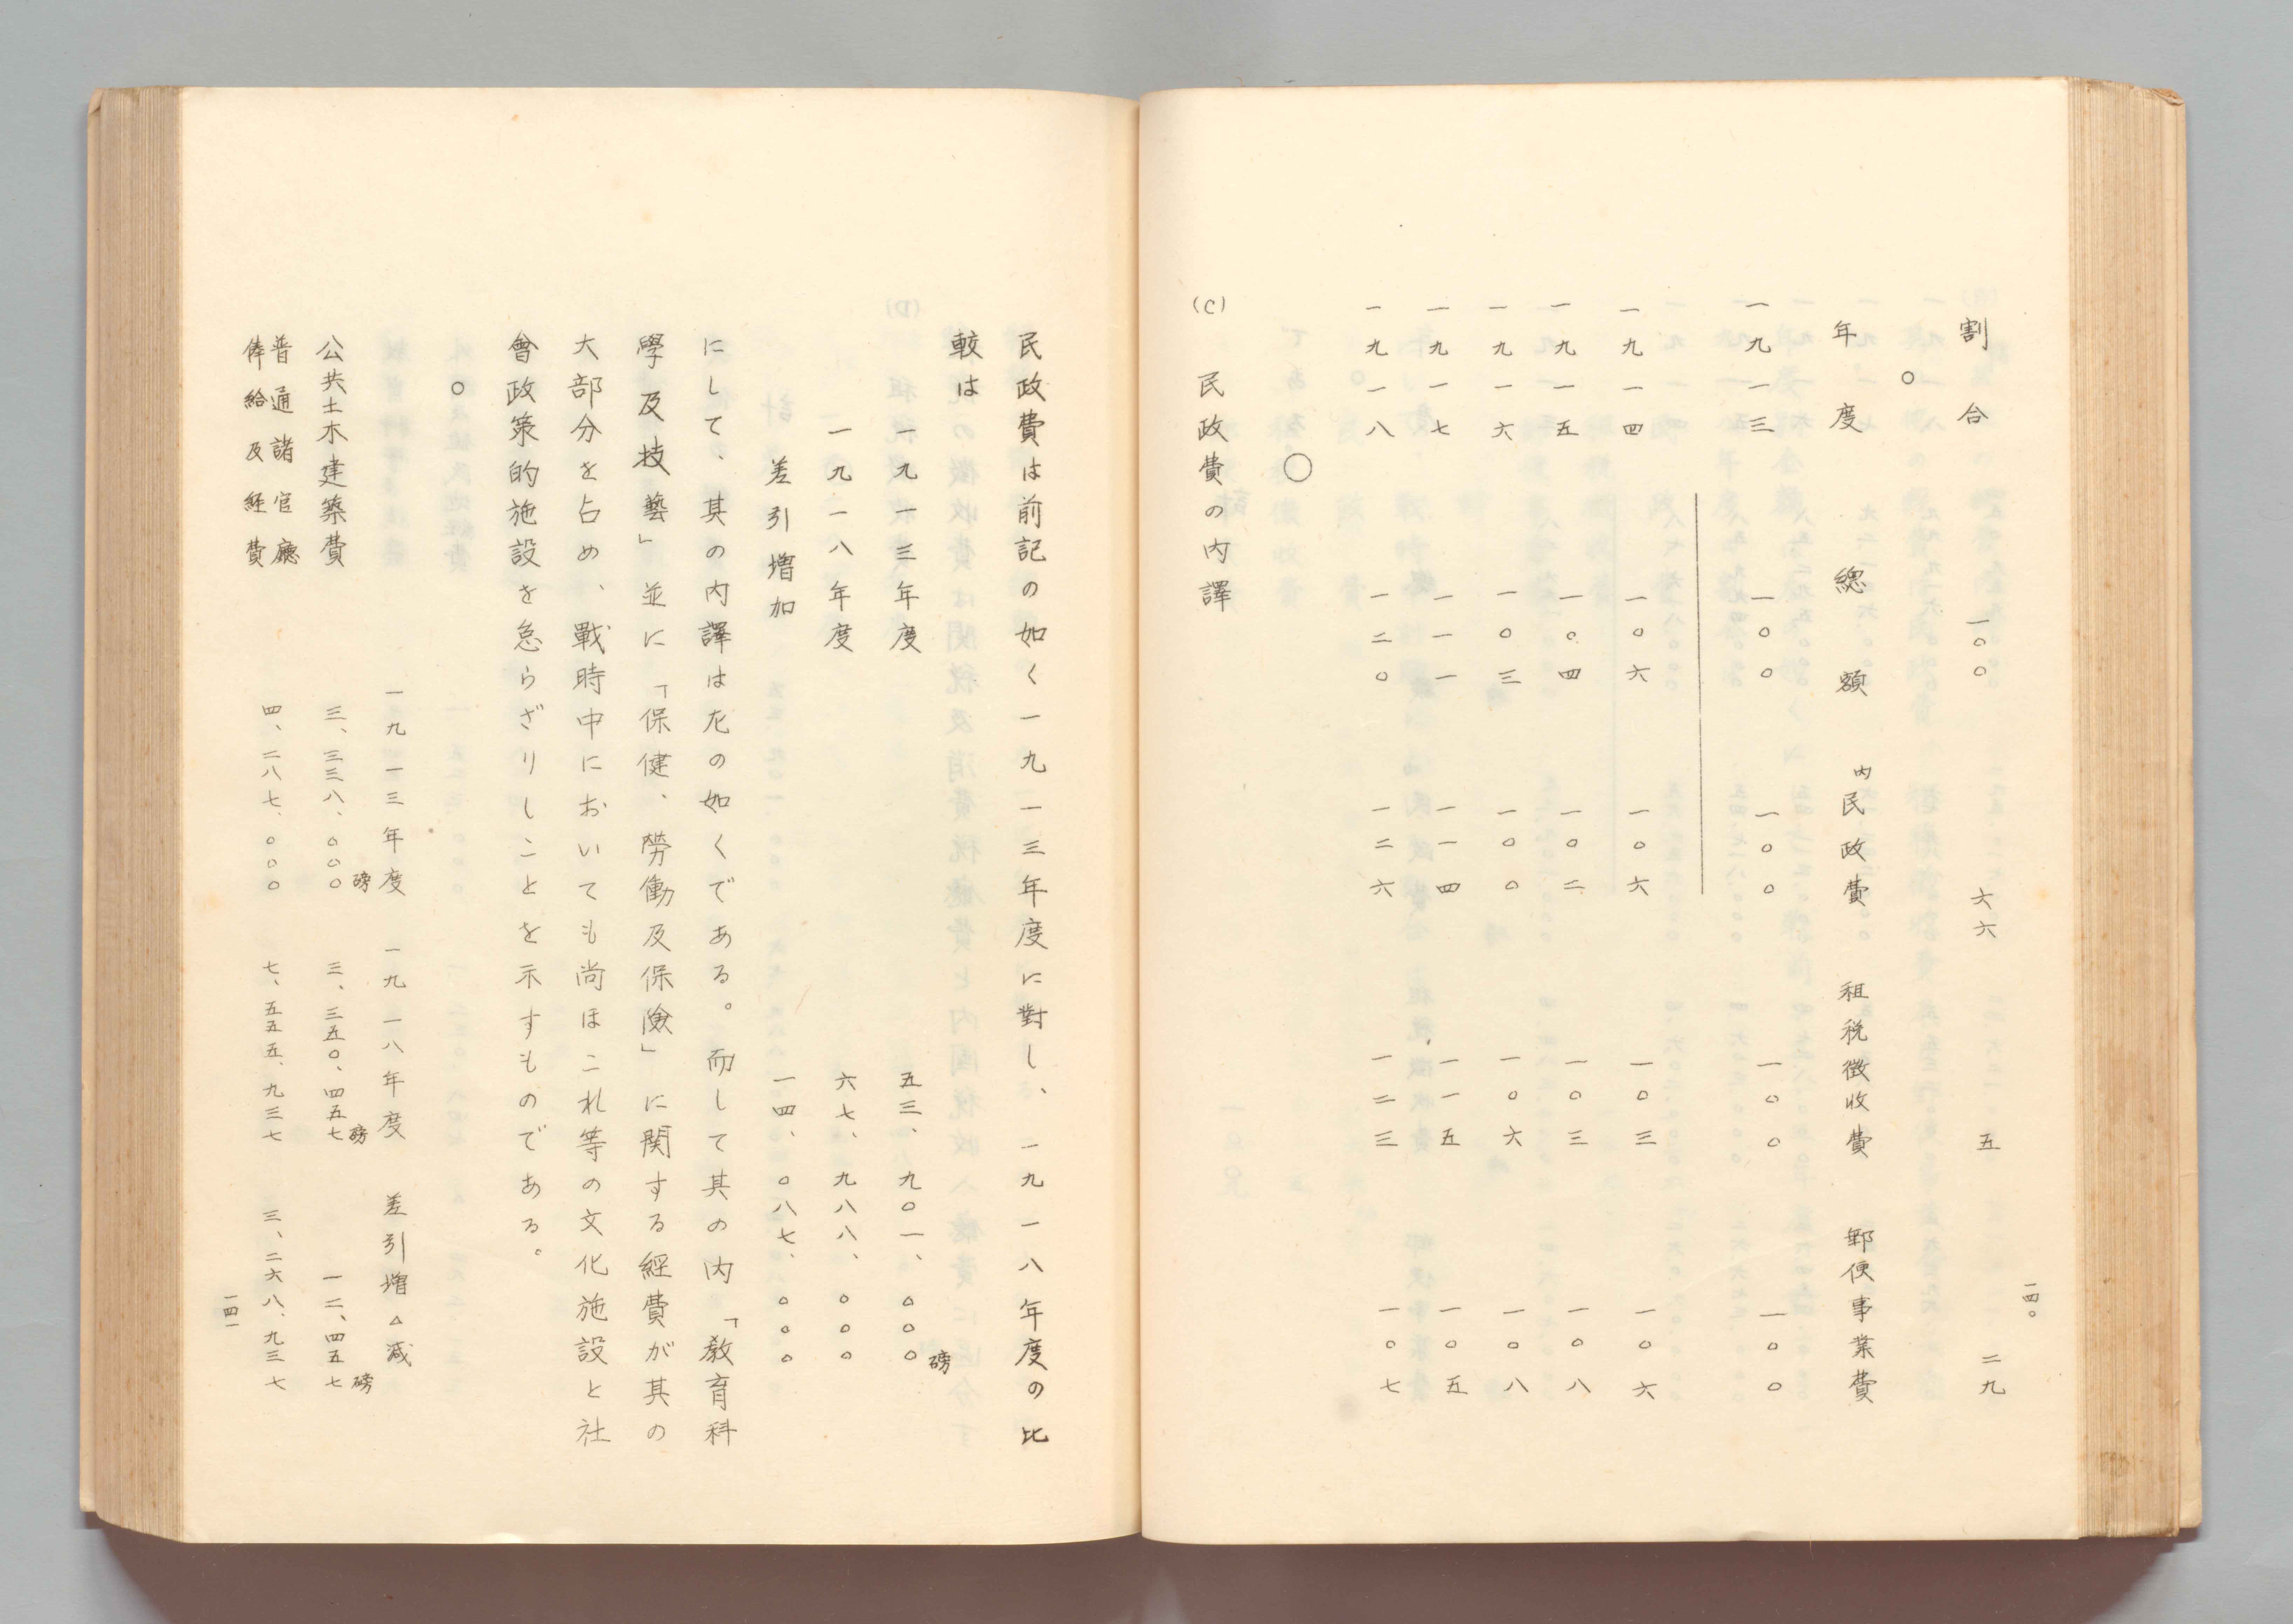 割合　一〇〇　六六　五　二九
〇
年度　總額　內民政費　租税徴收費　郵便事業費
一九一三　一〇〇　一〇〇　一〇〇　一〇〇
一九一四　一〇六　一〇六　一〇三　一〇六
一九一五　一〇四　一〇二　一〇三　一〇八
一九一六　一〇三　一〇〇　一〇六　一〇八
一九一七　一一一　一一四　一一五　一〇五
一九一八　一二〇　一二六　一二三　一〇七
〇
(C)　民政費の内譯
一四〇
民政費は前記の如く一九一三年度に對し、一九一八年度の比
較は
一九一三年度　五三、九〇一、〇〇〇磅
一九一八年度　六七、九八八、〇〇〇
差引増加　一四、〇八七、〇〇〇
にして、其の内譯は左の如くである。而して其の内「教育科
學及技藝」並に「保健、勞働及保険」に関する経費が其の
大部分を占め、戰時中においても尚ほこれ等の文化施設と社
會政策的施設を怠らざりしことを示すものである。
〇
一九一三年度　一九一八年度　差引増△減
公共土木建築費　三、三三八、〇〇〇磅　三、三五〇、四五七磅　一二、四五七磅
普通諸官廳
俸給及経費　四、二八七、〇〇〇　七、五五五、九三七　三、二六八、九三七
一四一